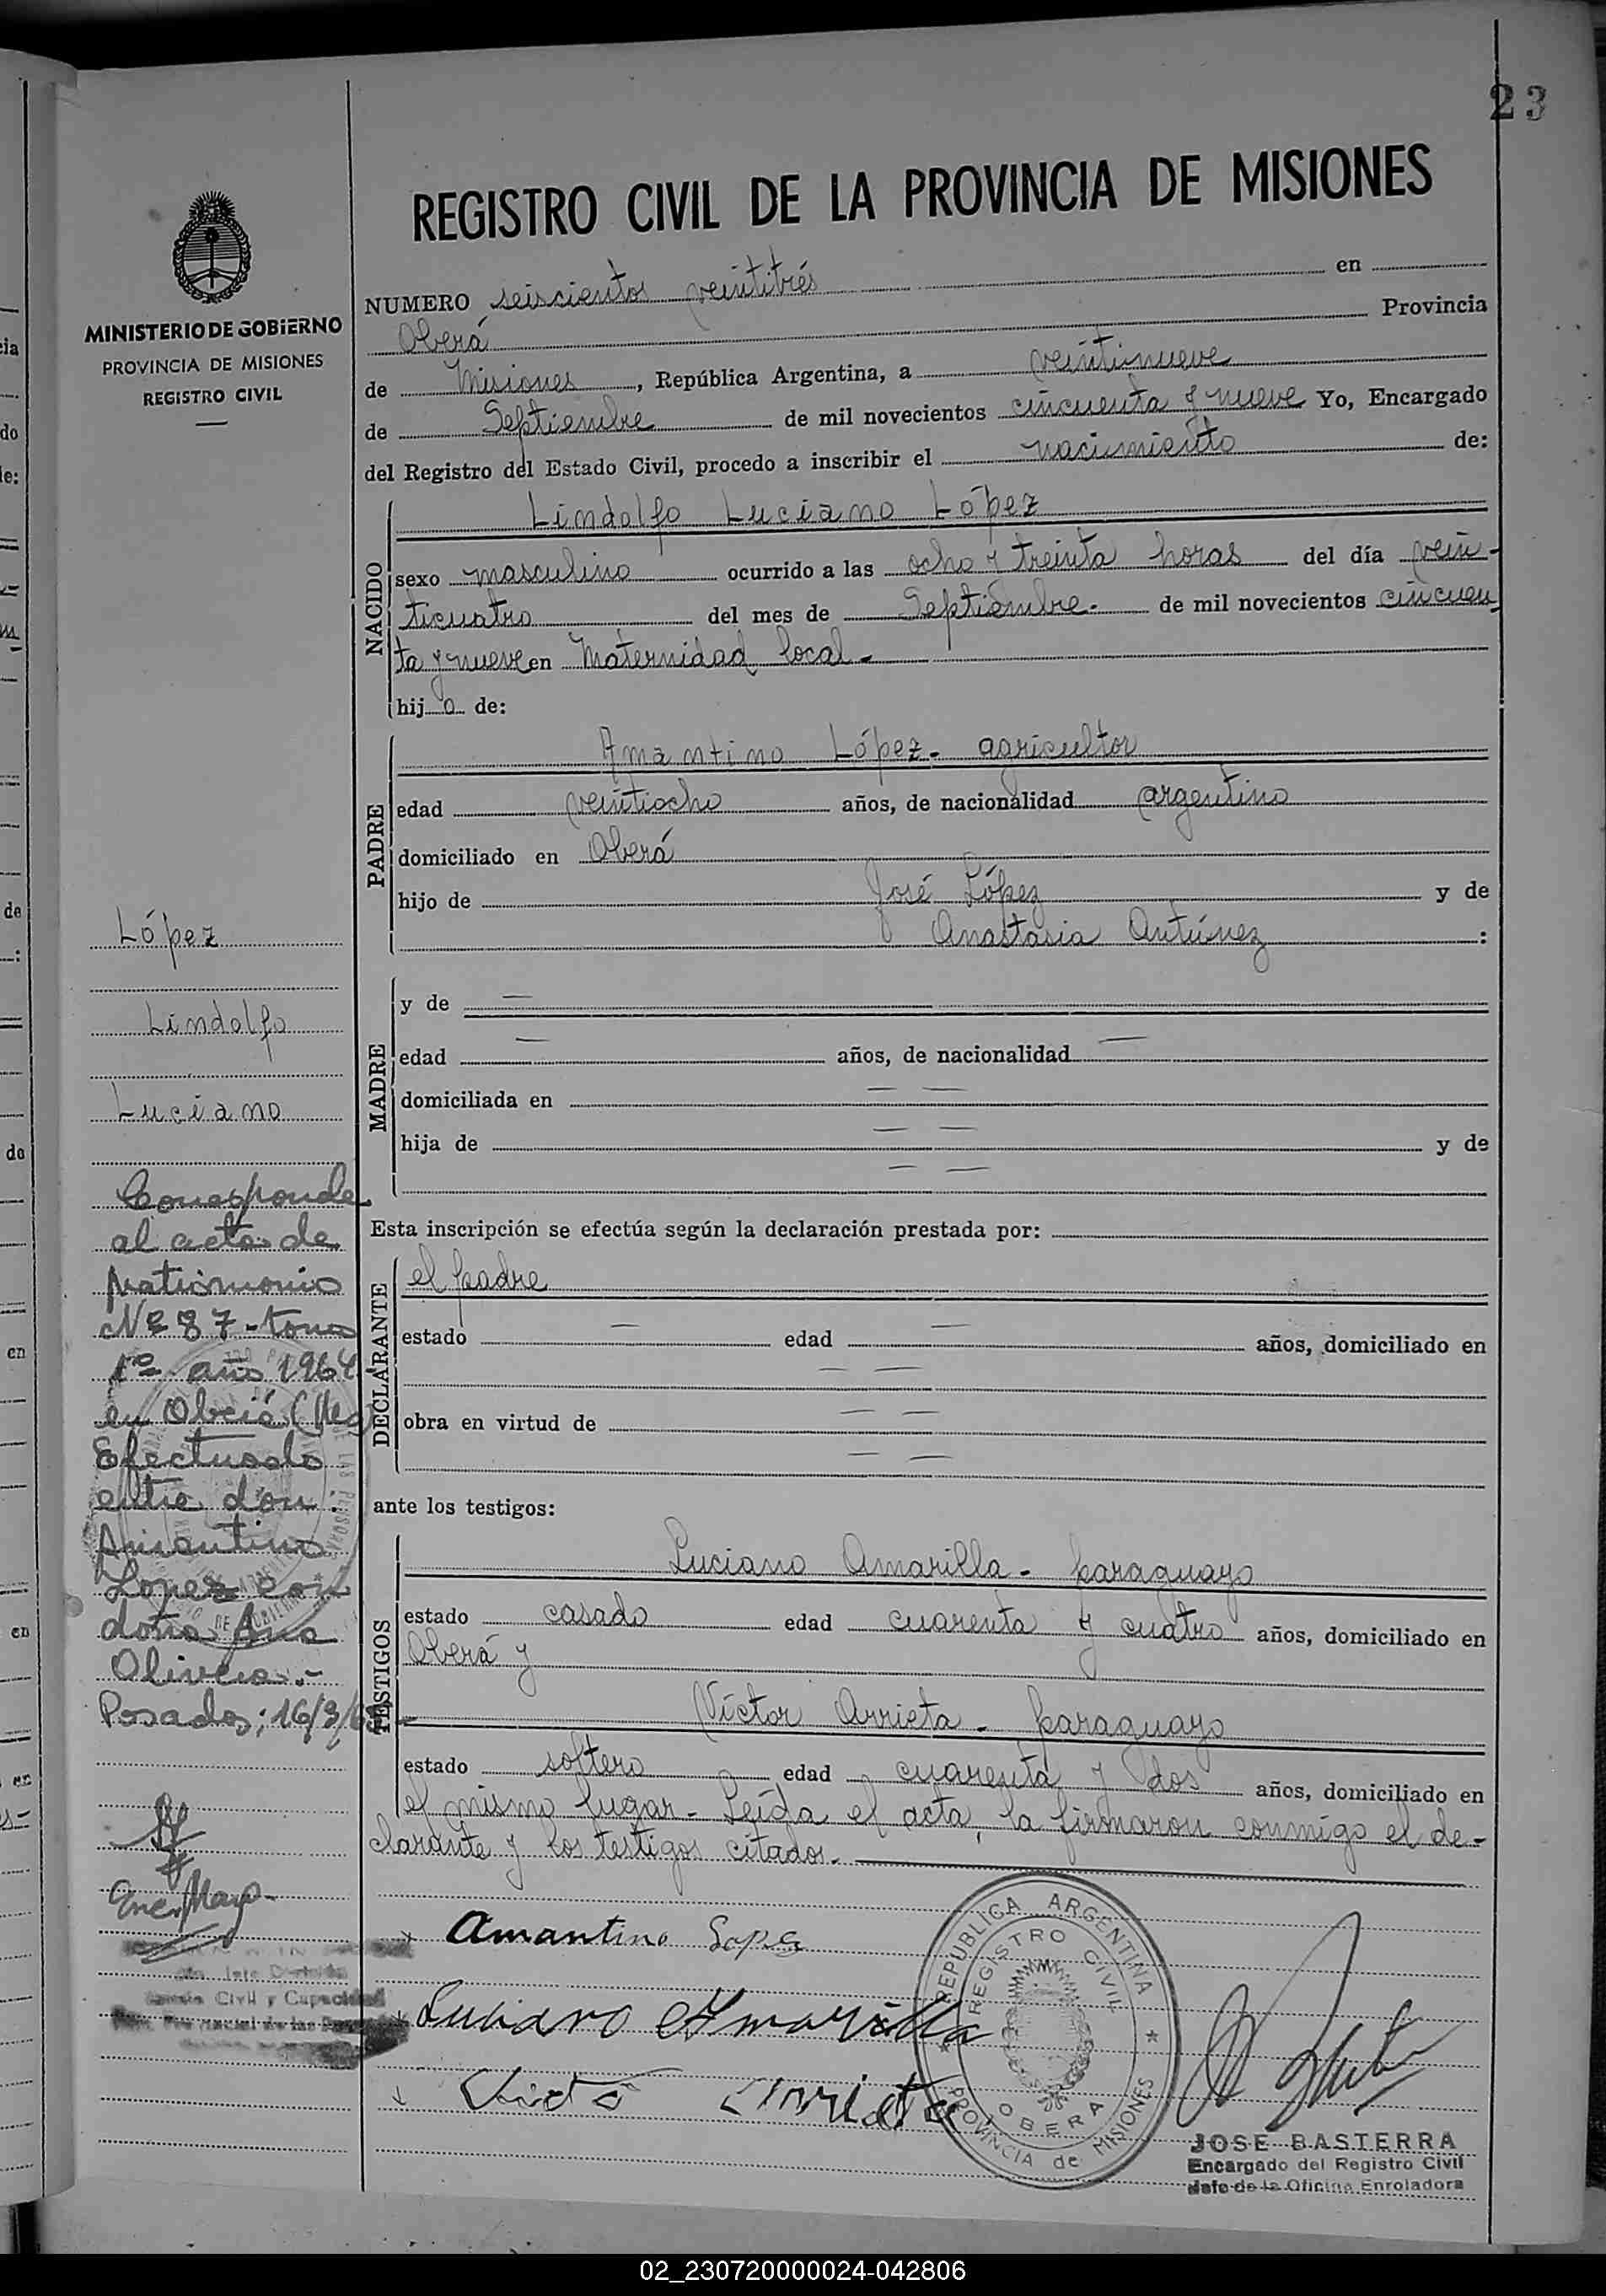 23
REGISTRO CIVIL DE LA PROVINCIA DE MISIONES
MINISTERIO DE GOBIERNO
PROVINCIA DE MISIONES
REGISTRO CIVIL
NUMERO seiscientos veintitrés en
Oberá Provincia
de Misiones, República Argentina, a veintinueve
de Septiembre de mil novecientos cincuenta y nueve Yo, Encargado
del Registro del Estado Civil, procedo a inscribir el nacimiento de:
NACIDO
Lindolfo Luciano López
sexo masculino ocurrido a las ocho y treinta horas del día vein-
ticuatro del mes de Septiembre.- de mil novecientos cincuen
ta y nueve en Maternidad local.-
hijo de:
PADRE
Amantino López.- agricultor
edad veintiocho años, de nacionalidad argentino
domiciliado en Oberá
hijo de José López y de
Anastasia Antúnez :
MADRE
y de —
edad — años, de nacionalidad —
domiciliada en — —
hija de — — y de
— —
Esta inscripción se efectúa según la declaración prestada por:
DECLARANTE
el padre
estado — edad — años, domiciliado en
— —
obra en virtud de — —
— —
ante los testigos:
TESTIGOS
Luciano Amarilla - paraguayo
estado casado edad cuarenta y cuatro años, domiciliado en
Oberá y
Víctor Arrieta - paraguayo
estado soltero edad cuarenta y dos años, domiciliado en
el mismo lugar.- Leída el acta, la firmaron conmigo el de-
clarante y los testigos citados.-
López
Lindolfo
Luciano
Corresponde
al acta de
matrimonio
Nº 87 - tomo
1º año 1964
en Oberá
Efectuado
entre don:
Amantino
Lopez con
doña Ana
Olivera.-
Posadas; 16/3/
Amantino Lopez
Luciano Amarilla
Victo Arrieta
REPUBLICA ARGENTINA
REGISTRO CIVIL
OBERA
PROVINCIA de MISIONES
JOSE BASTERRA
Encargado del Registro Civil
Jefe de la Oficina Enroladora
02_230720000024-042806